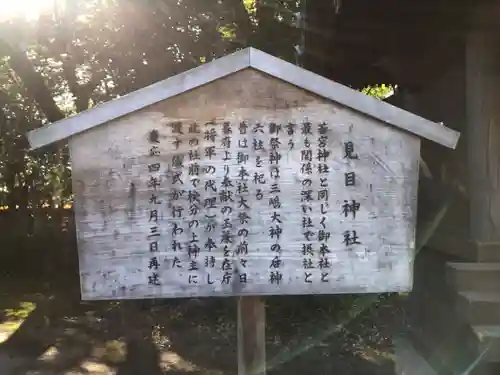 見目神社
若宮神社と同じく御本社と
最も関係の深い社で摂社と
言う
御祭神は三嶋大神の后神
六柱を祀る
昔は御本社大祭の前々日
幕府より奉献の土条を在庁
(将軍の代理)が奉持し
此の社前で検分の上神主に
渡す儀式が行われた
慶応四年九月三日再建